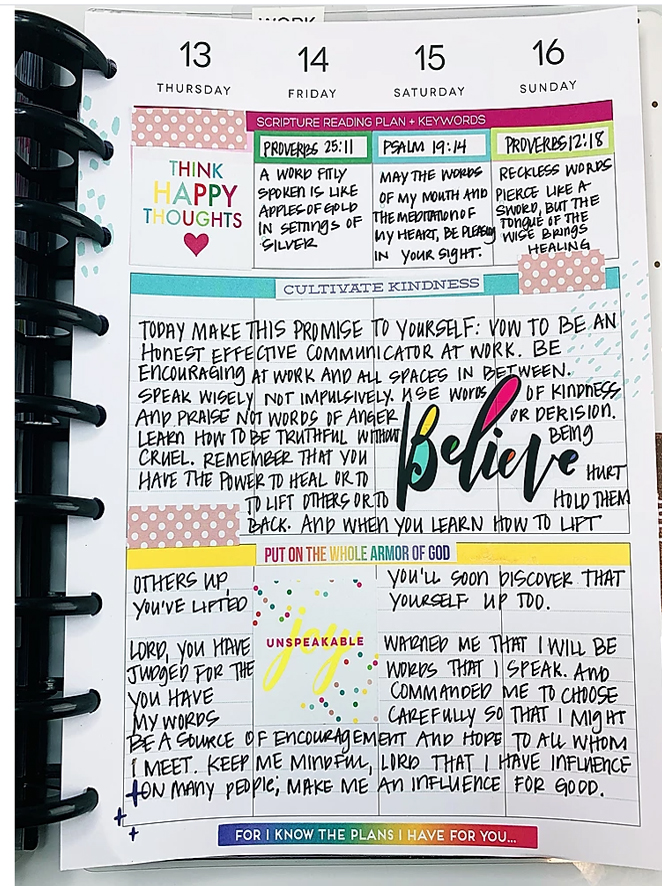 WORK
13 14 15 16
THURSDAY FRIDAY SATURDAY SUNDAY
SCRIPTURE READING PLAN + KEYWORDS
THINK
HAPPY
THOUGHTS
PROVERBS 25:11
A WORD FITLY
SPOKEN IS LIKE
APPLES OF GOLD
IN SETTINGS OF
SILVER
PSALM 19:14
MAY THE WORDS
OF MY MOUTH AND
THE MEDITATION OF
MY HEART, BE PLEASING
IN YOUR SIGHT.
PROVERBS 12:18
RECKLESS WORDS
PIERCE LIKE A
SWORD, BUT THE
TONGUE OF THE
WISE BRINGS
HEALING
CULTIVATE KINDNESS
TODAY MAKE THIS PROMISE TO YOURSELF: VOW TO BE AN
HONEST EFFECTIVE COMMUNICATOR AT WORK. BE
ENCOURAGING AT WORK AND ALL SPACES IN BETWEEN.
SPEAK WISELY NOT IMPULSIVELY. USE WORDS OF KINDNESS
AND PRAISE NOT WORDS OF ANGER OR DERISION.
LEARN HOW TO BE TRUTHFUL WITHOUT BEING
CRUEL. REMEMBER THAT YOU
HAVE THE POWER TO HEAL OR TO HURT
TO LIFT OTHERS OR TO HOLD THEM
BACK. AND WHEN YOU LEARN HOW TO LIFT
Believe
PUT ON THE WHOLE ARMOR OF GOD
OTHERS UP, YOU'LL SOON DISCOVER THAT
YOU'VE LIFTED YOURSELF UP TOO.
joy
UNSPEAKABLE
LORD, YOU HAVE WARNED ME THAT I WILL BE
JUDGED FOR THE WORDS THAT I SPEAK. AND
YOU HAVE COMMANDED ME TO CHOOSE
MY WORDS CAREFULLY SO THAT I MIGHT
BE A SOURCE OF ENCOURAGEMENT AND HOPE TO ALL WHOM
I MEET. KEEP ME MINDFUL, LORD THAT I HAVE INFLUENCE
ON MANY PEOPLE; MAKE ME AN INFLUENCE FOR GOOD.
FOR I KNOW THE PLANS I HAVE FOR YOU...